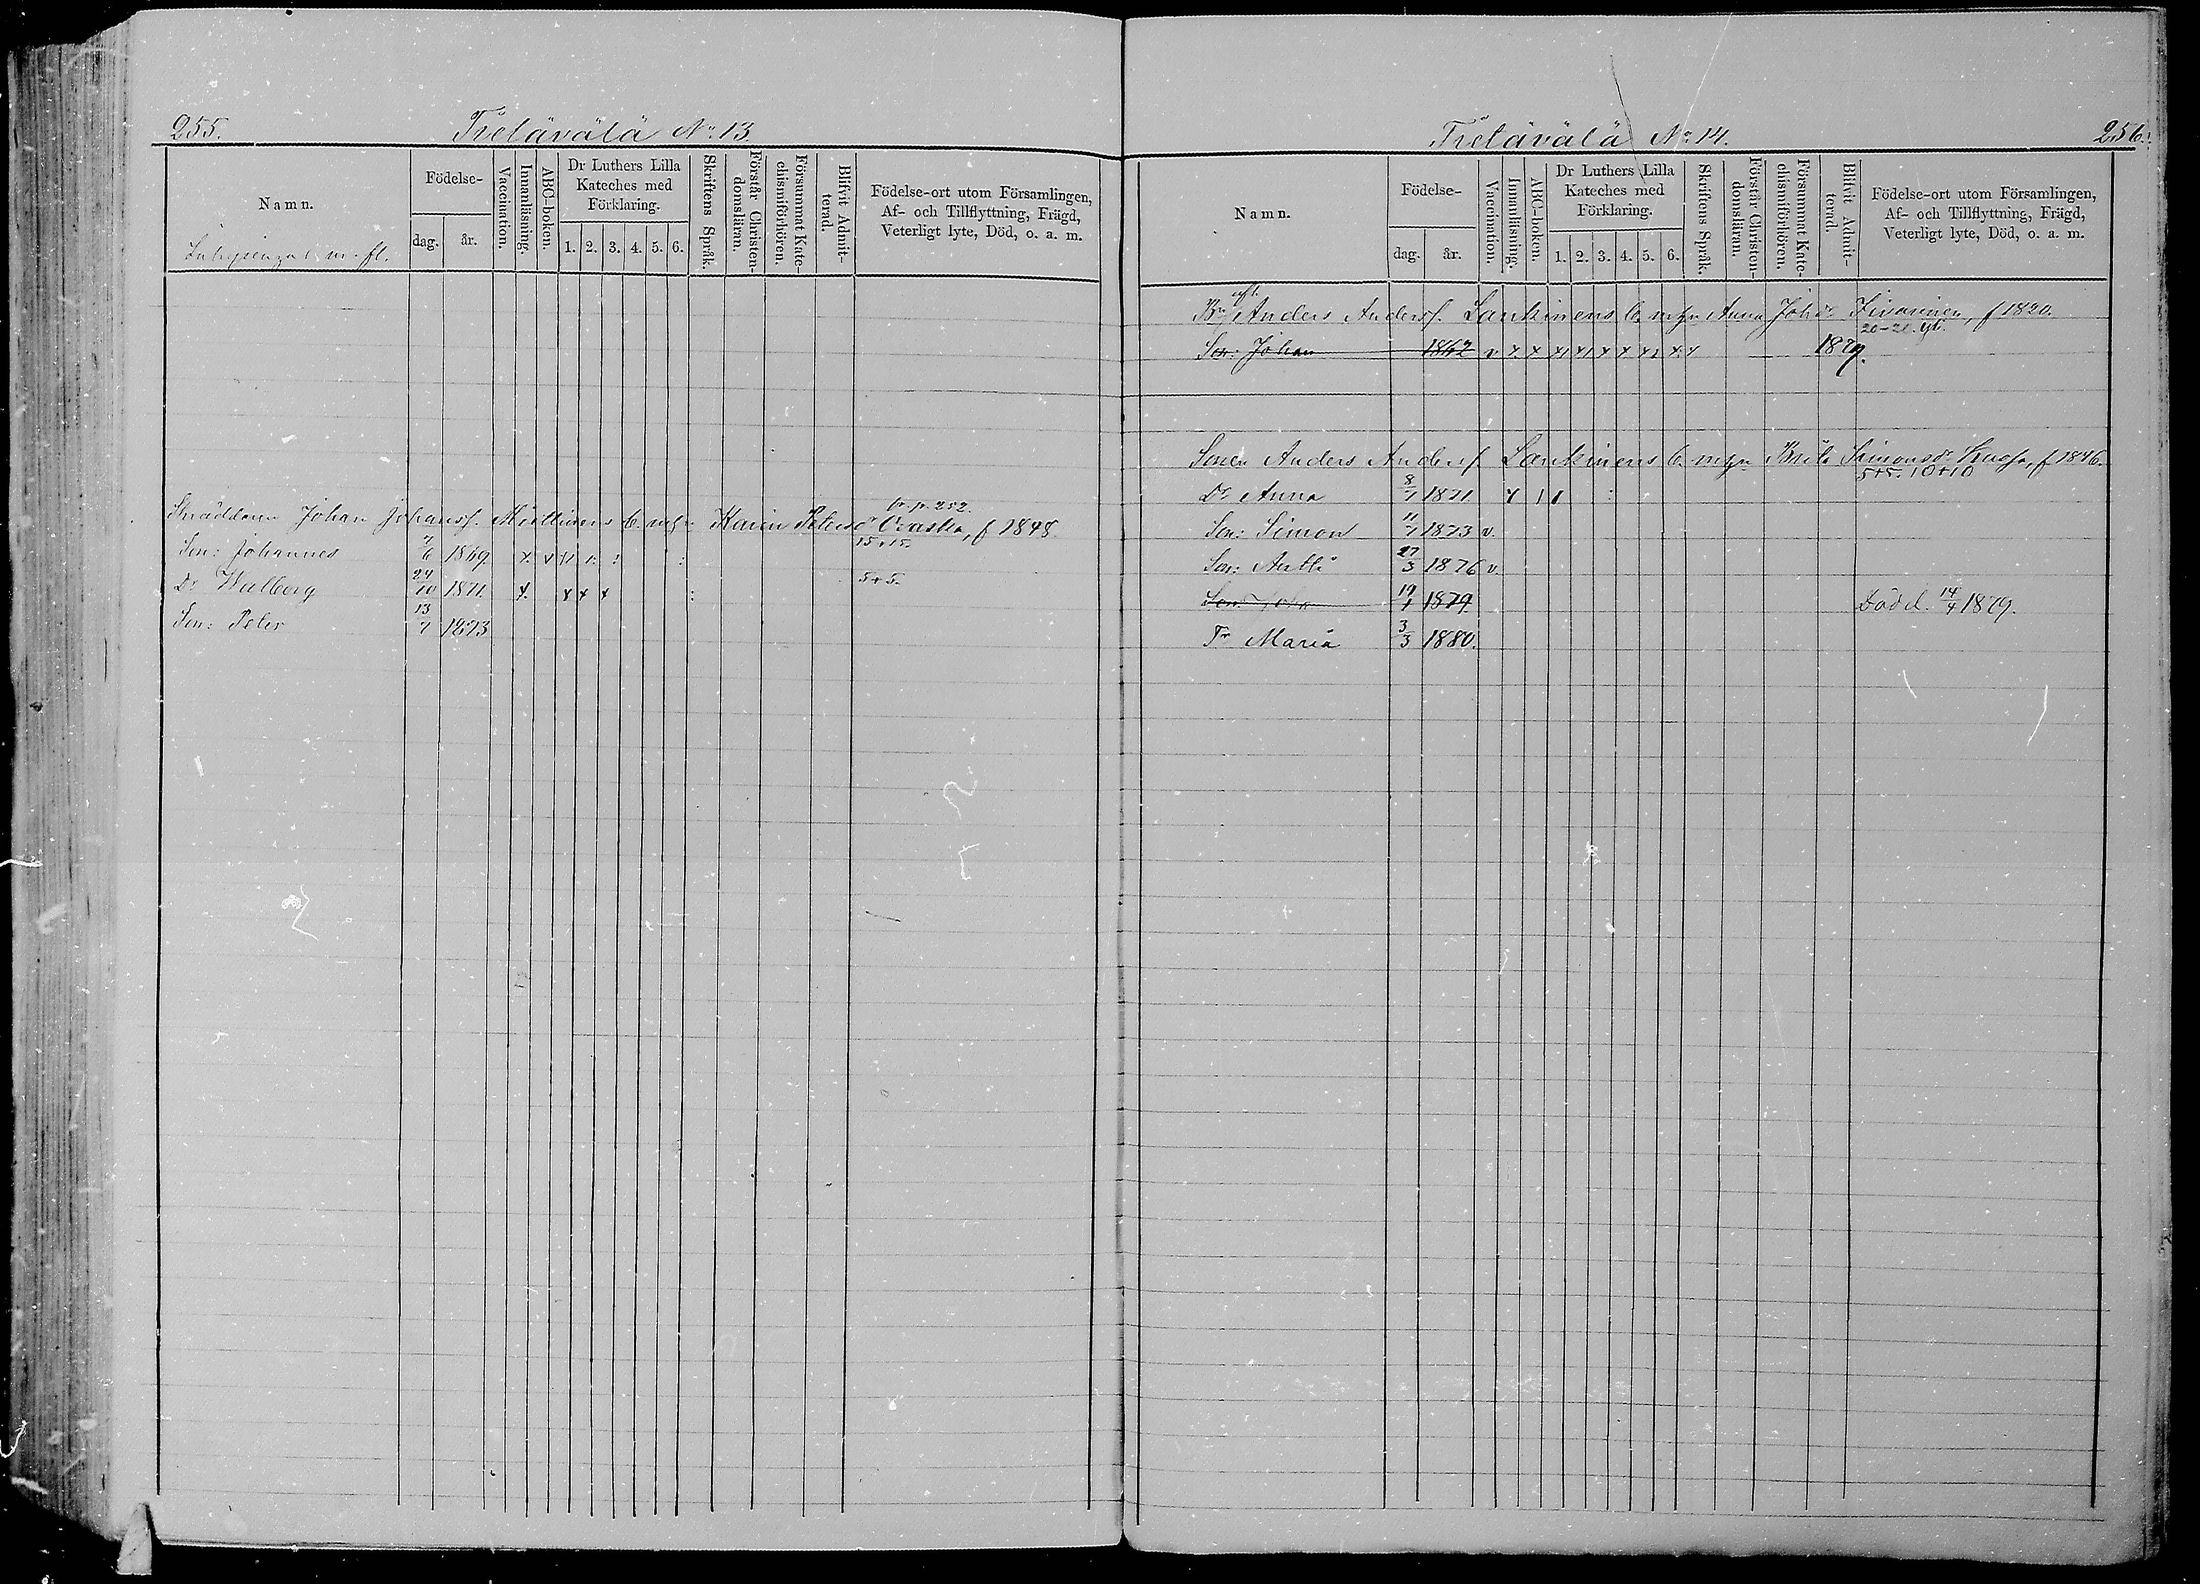 255.
Tietävälä No 13.
Namn.
Födelse-
dag.
år.
Vaccination.
Innanläsning.
ABC-boken.
Dr Luthers Lilla
Kateches med
Förklaring.
1. 2. 3. 4. 5. 6.
Skriftens Språk.
Förstår Christen-
domsläran.
Försummat Kate-
chismiförhören.
Blifvit Admit-
terad.
Födelse-ort utom Församlingen,
Af- och Tillflyttning, Frägd,
Veterligt lyte, Död, o. a. m.
m. fl.
fr. p. 252.
Skräddaren Johan Johansf. Miettinens b. m. hu Karin Petersdr Ovaska, f 1848.
15+15.
Son: Johannes 7/6 1869.
Dr Walborg 24/10 1871. 5+5.
Son: Peter 13/7 1873
Tietävälä No 14.
256.
Namn.
Födelse-
dag.
år.
Vaccination.
Innanläsning.
ABC-boken.
Dr Luthers Lilla
Kateches med
Förklaring.
1. 2. 3. 4. 5. 6.
Skriftens Språk.
Förstår Christen-
domsläran.
Försummat Kate-
chismiförhören.
Blifvit Admit-
terad.
Födelse-ort utom Församlingen,
Af- och Tillflyttning, Frägd,
Veterligt lyte, Död, o. a. m.
afl.
Bn Anders Andersf. Lankinens b. m. hu Anna Johdr f 1820.
20-21.
Son: Johan 1862 v x x x x x x x x x 1879.
Sonen Anders Andersf. Lankinens b. m. hu Brita Simonsdr f 1846.
5+5. 10+10
Dr Anna 8/7 1871
Son: Simon 11/7 1873 v.
Son: Antti 27/3 1876 v.
Son: 19/1 1879 Död d. 14/4 1879.
Dr Maria 3/3 1880.